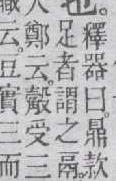 也。釋器曰。鼎款
足者謂之鬲。
人鄭云。觳受三
云。豆實三而